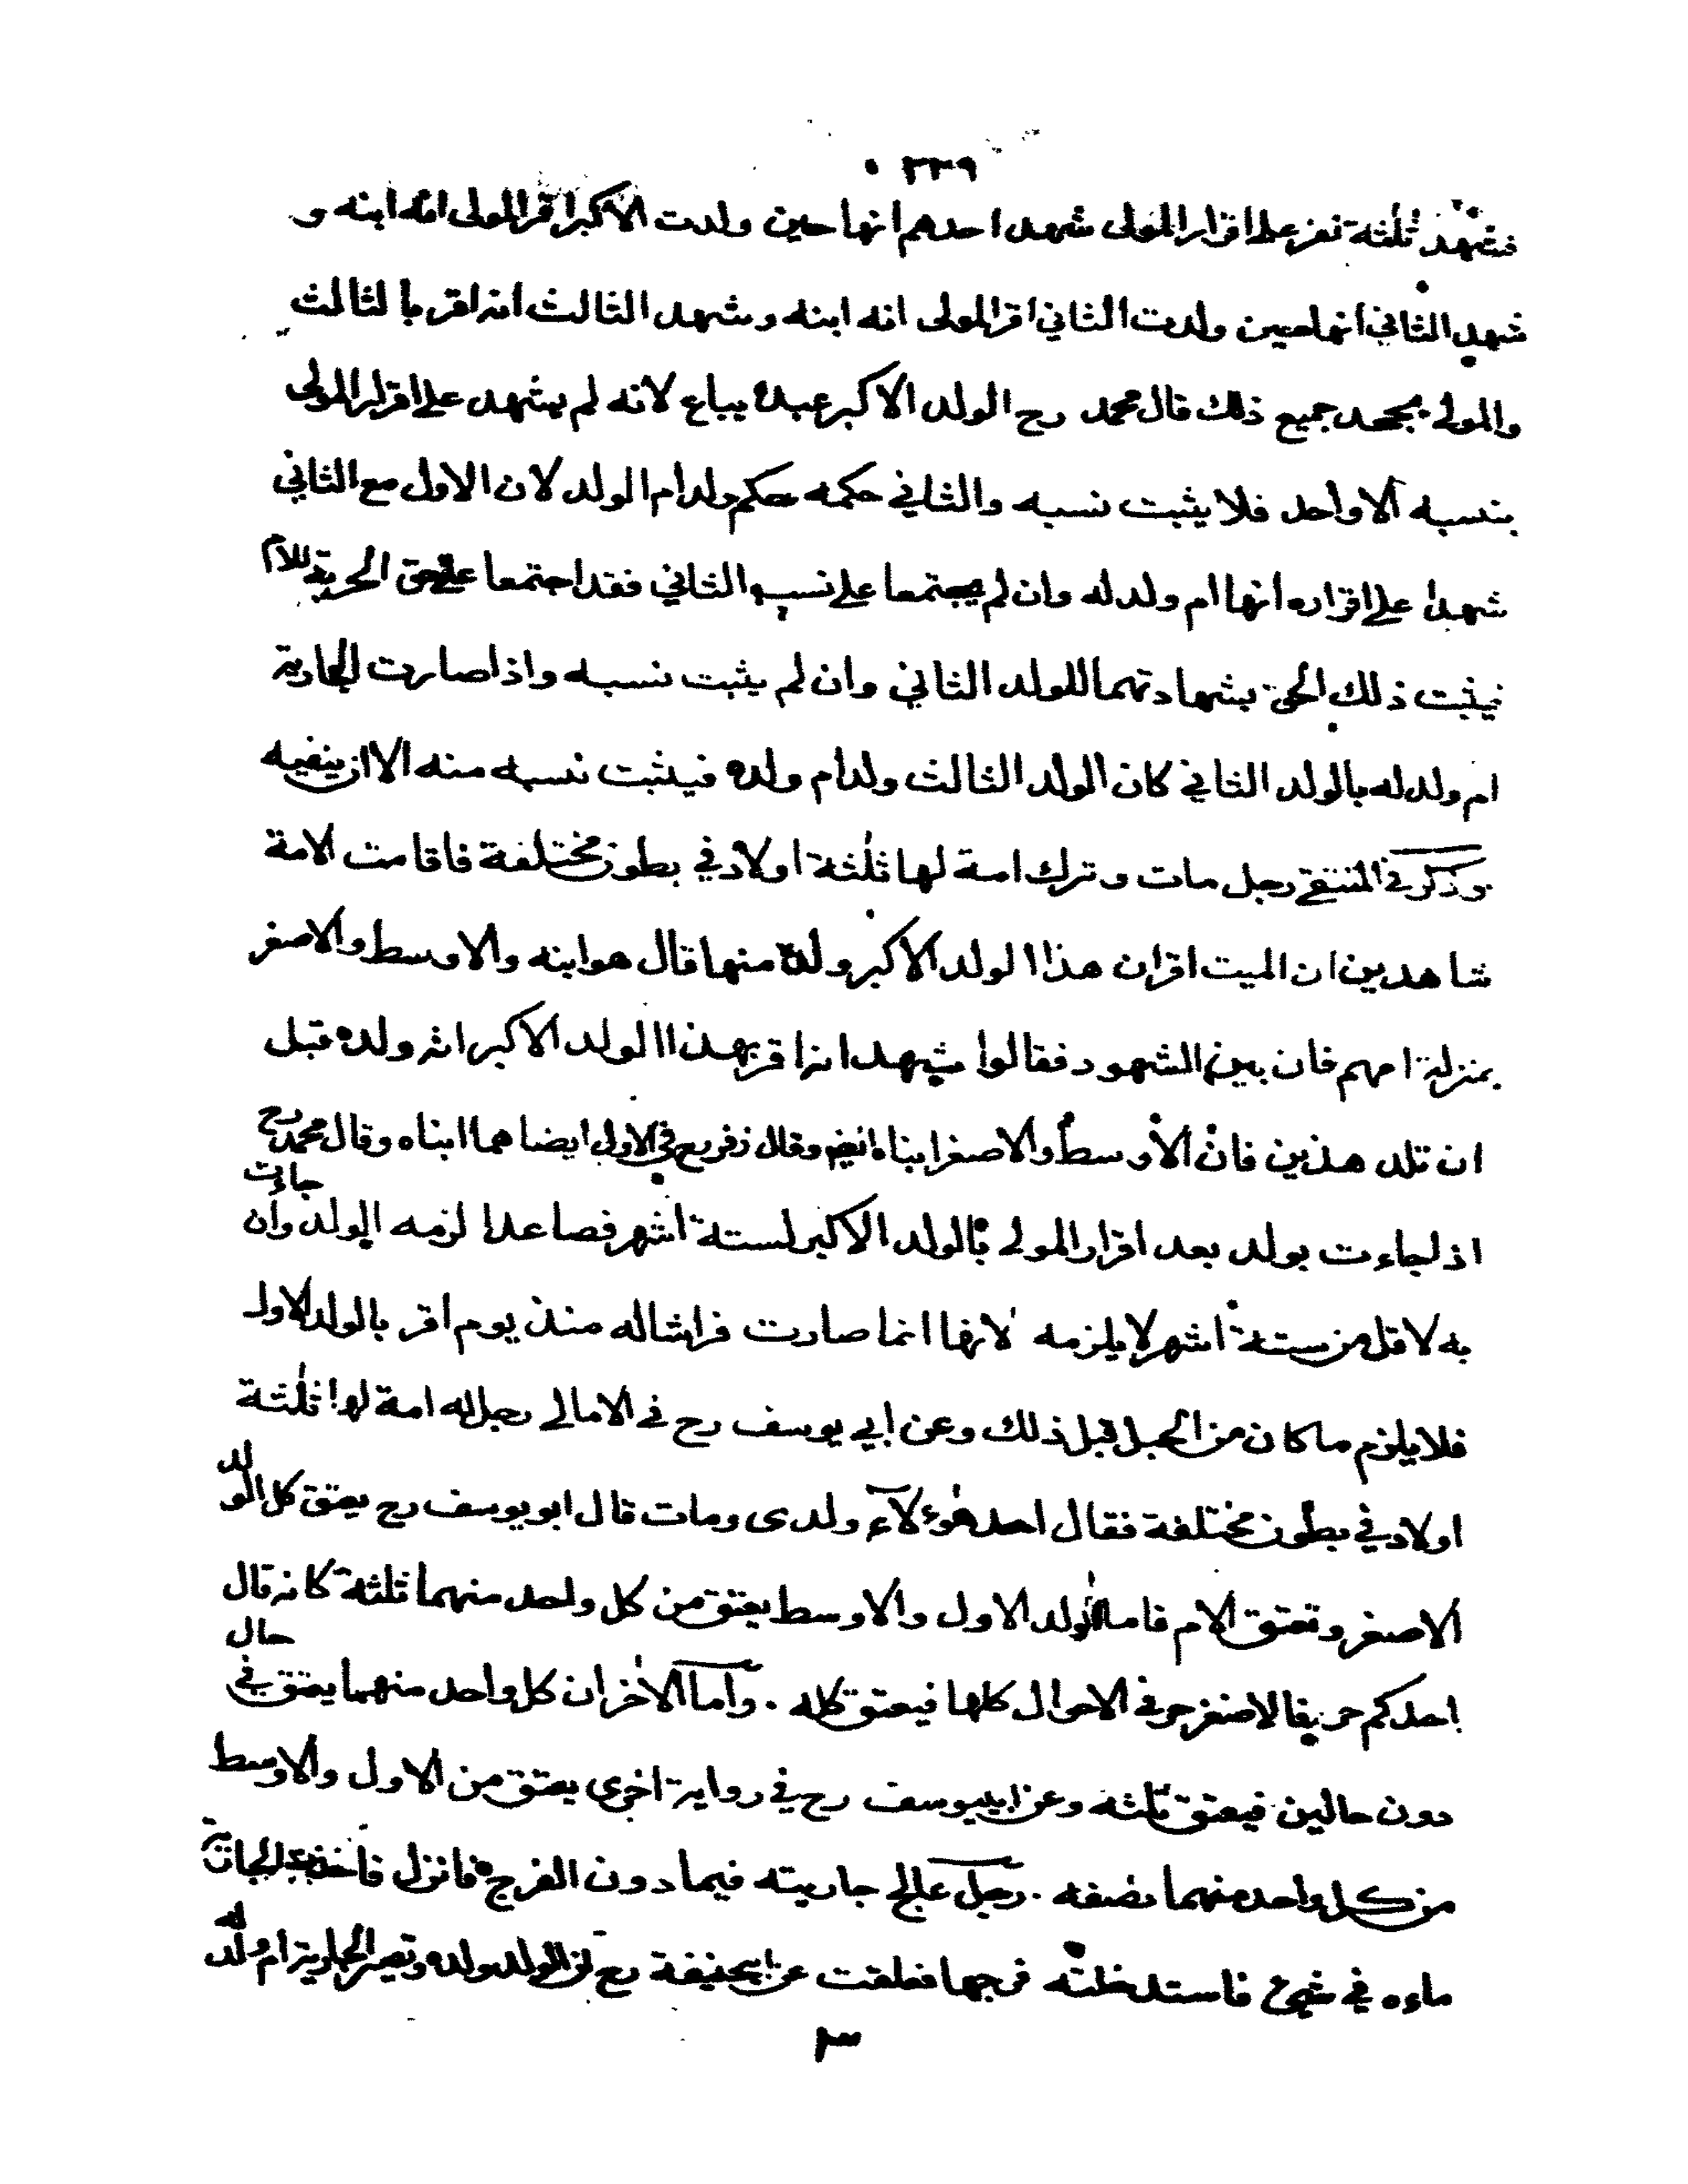 ٣٣٩
فشهد ثلثة نفر على اقرار المولى شهد احدهم انها حين ولدت الاكبر اقر المولى انه ابنه و
شهد الثاني انها حين ولدت الثاني اقر المولى انه ابنه وشهد الثالث انه اقر بالثالث
والمولى يجحد جميع ذلك قال محمد رح الولد الاكبر عبد يباع لانه لم يشهد على اقرار المولى
بنسبه الا واحد فلا يثبت نسبه والثاني حكمه حكم ولد ام الولد لان الاول مع الثاني
شهدا على اقراره انها ام ولد له وان لم يجتمعا على نسب الثاني فقد اجتمعا على حق الحرية للام
فيثبت ذلك الحق بشهادتهما للولد الثاني وان لم يثبت نسبه واذا صارت الجارية
ام ولد له بالولد الثاني كان الولد الثالث ولد ام ولده فيثبت نسبه منه الا ان ينفيه
وذكر في المنتقى رجل مات وترك امة لها ثلثة اولاد في بطون مختلفة فاقامت الامة
شاهدين ان الميت اقر ان هذا الولد الاكبر ولده منها قال هو ابنه والاوسط والاصغر
بمنزلة امهم فان بين الشهود فقالوا شهدا انه اقر بهذا الولد الاكبر انه ولده قبل
ان تلد هذين فان الاوسط والاصغر ابناه ايضا وقال زفر رح في الاولى ايضا هما ابناه وقال محمد رح
اذا جاءت بولد بعد اقرار المولى بالولد الاكبر لستة اشهر فصاعدا لزمه الولد وان جاءت
به لاقل من ستة اشهر لا يلزمه لانها انما صارت فراشا له منذ يوم اقر بالولد الاول
فلا يلزم ما كان من الحبل قبل ذلك وعن ابي يوسف رح في الامالي رجل له امة لها ثلثة
اولاد في بطون مختلفة فقال احد هؤلاء ولدى ومات قال ابو يوسف رح يعتق كل الولد
الاصغر وتعتق الام فاما الولد الاول والاوسط يعتق من كل واحد منهما ثلثه كانه قال
احدكم حر فالاصغر حر في الاحوال كلها فيعتق كله . واما الاخران كل واحد منهما يعتق في حال
دون حالين فيعتق ثلثه وعن ابي يوسف رح في رواية اخرى يعتق من الاول والاوسط
من كل واحد منهما نصفه . رجل عالج جاريته فيما دون الفرج فانزل فاخذت الجارية
ماءه في شيئ فاستدخلته فرجها فعلقت عن ابي حنيفة رح ان الولد ولده وتصير الجارية ام ولد له
٣